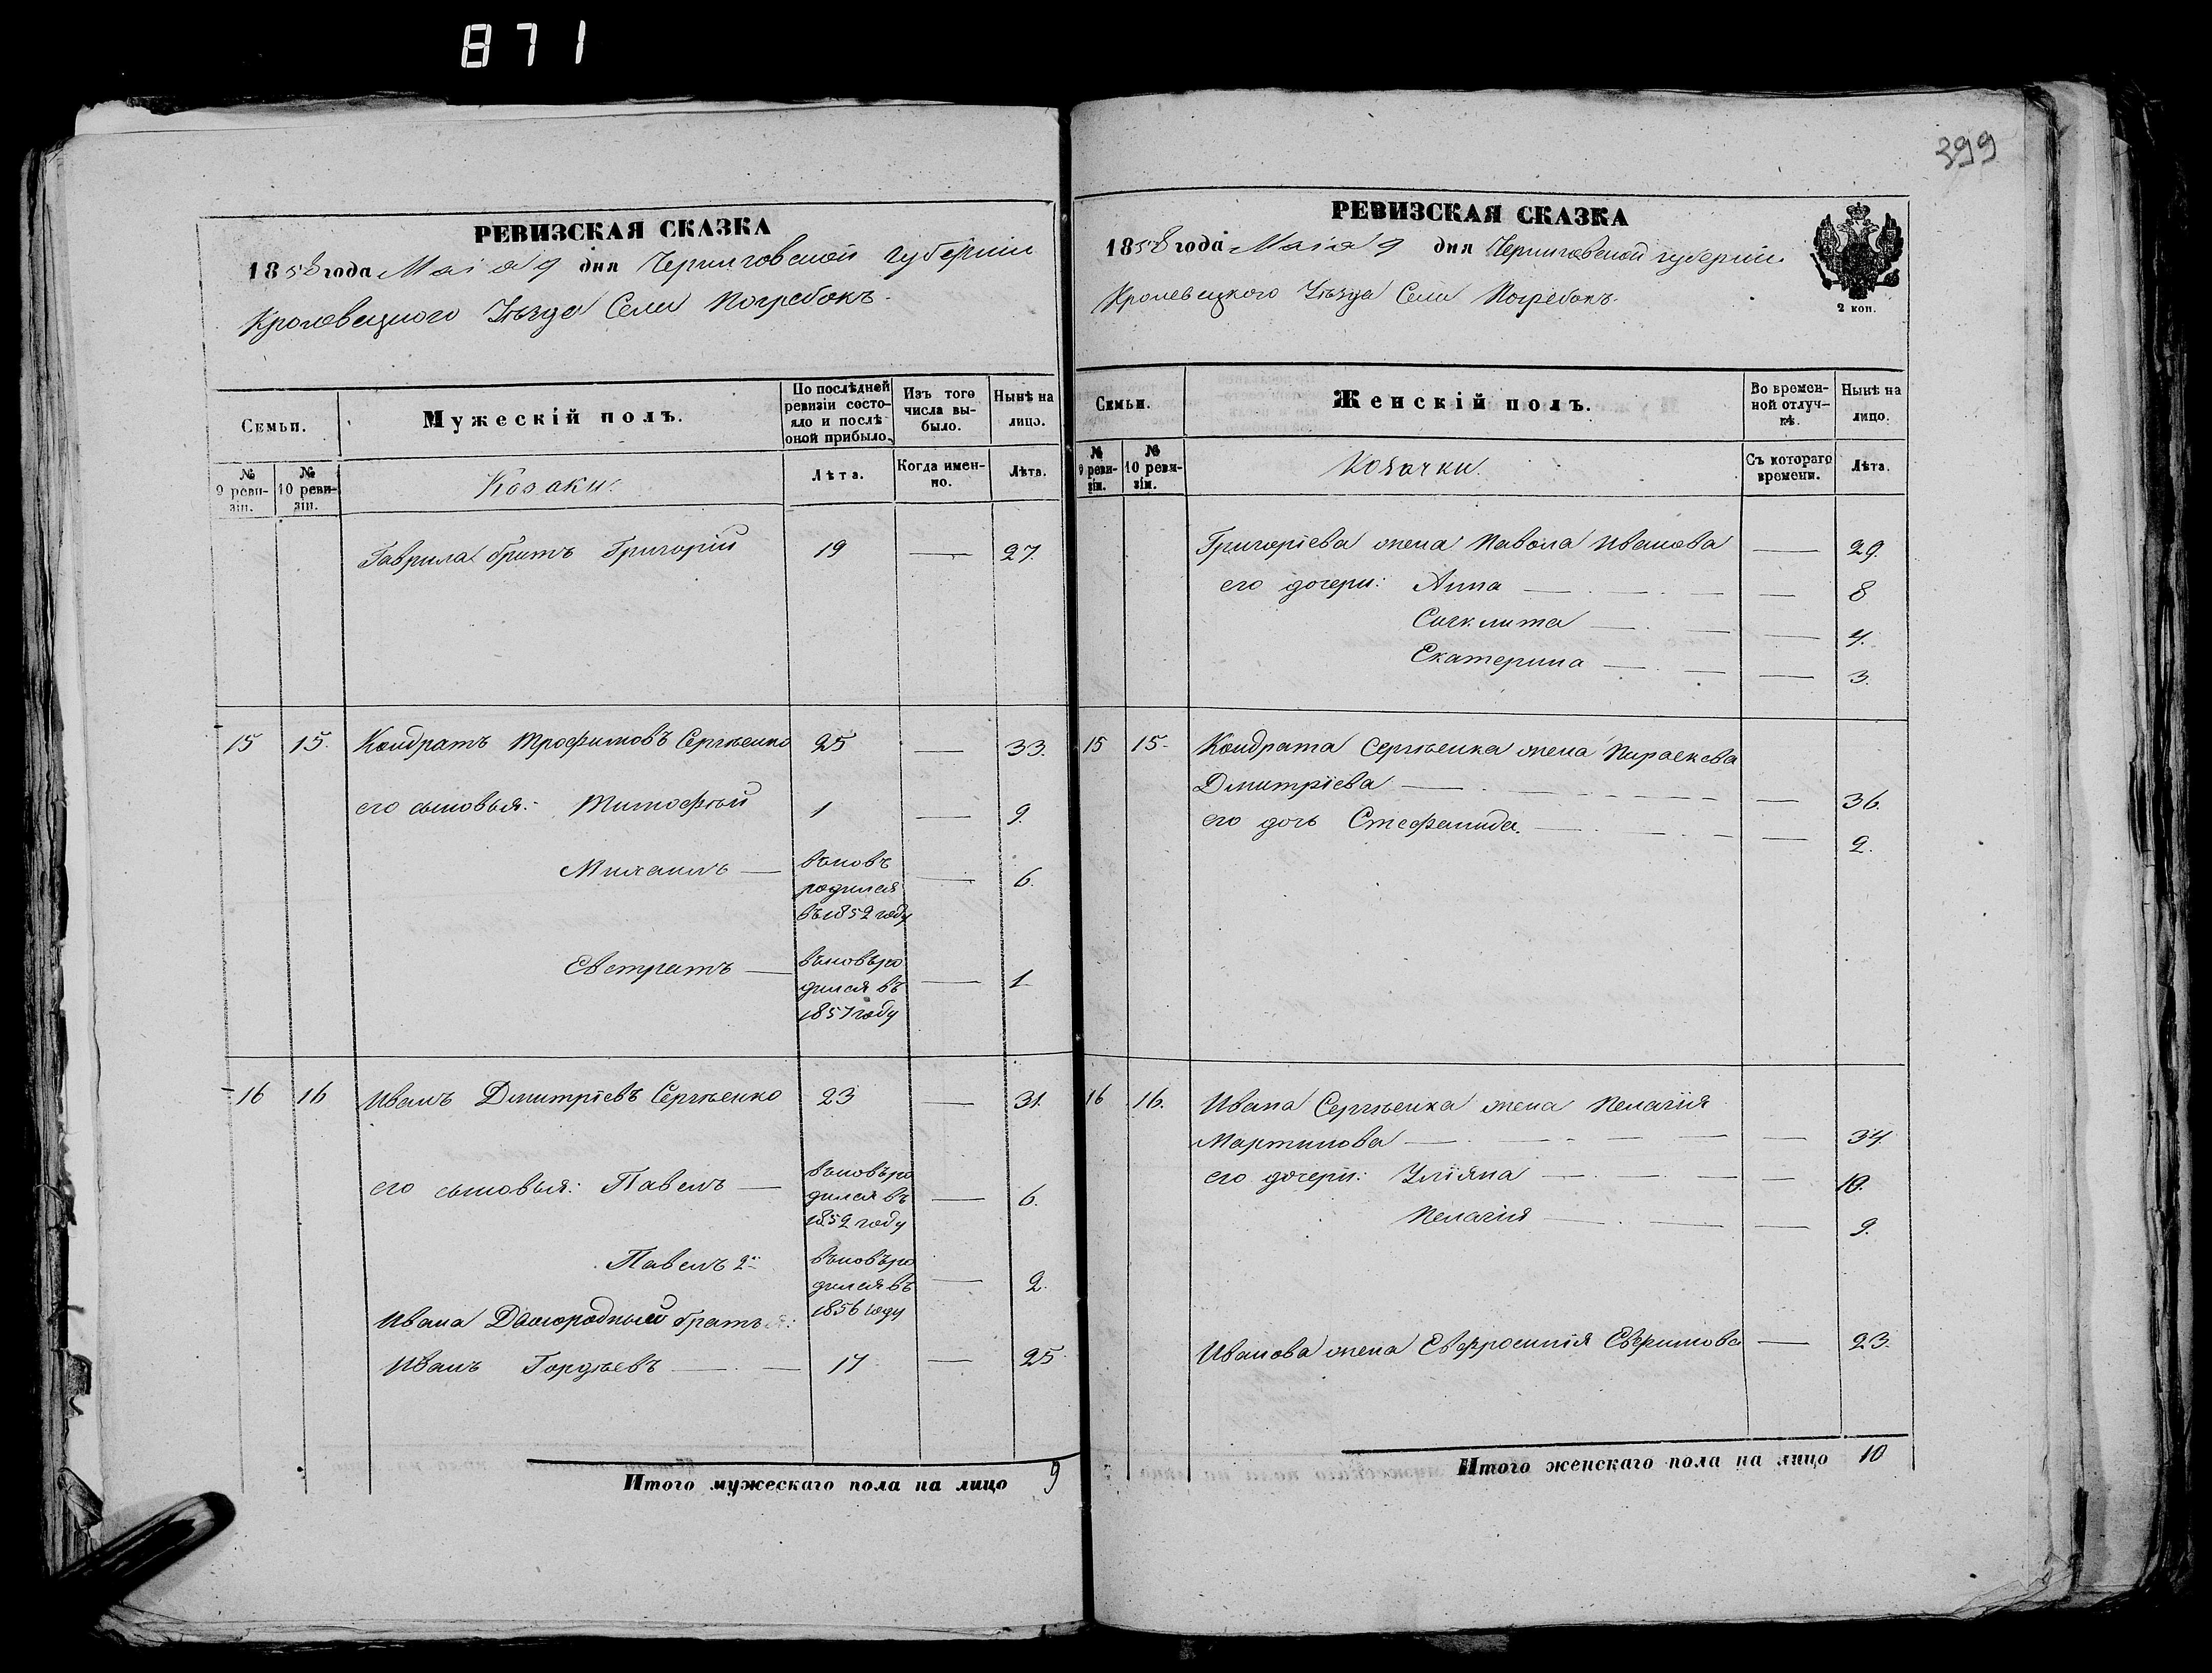 871
399
РЕВИЗСКАЯ СКАЗКА
1858 года Маія 9 дня Черниговской губерніи
Кролевецкого Уѣзда Села Погребокъ.
Семьи.
Мужескій полъ.
По послѣдней ревизіи состояло и послѣ оной прибыло.
Изъ того числа выбыло.
Нынѣ на лицо.
№ 9 ревизіи.
№ 10 ревизіи.
Козаки.
Лѣта.
Когда именно.
Лѣта.
Гаврила братъ Григорій 19 — 27.
15 15. Кондратъ Трофимовъ Сергѣенко 25 — 33.
его сыновья: Тимофѣй 1 — 9.
Михаилъ — вновь родился въ 1852 году — 6.
Евстратъ — вновь родился въ 1857 году — 1
16 16 Иванъ Дмитріевъ Сергѣенко 23 — 31.
его сыновья: Павелъ — вновь родился въ 1852 году — 6.
Павелъ 2й вновь родился въ 1856 году — 2.
Ивана братъ:
Иванъ Гордѣевъ — 17 — 25
Итого мужескаго пола на лицо 9
РЕВИЗСКАЯ СКАЗКА
1858 года Маія 9 дня Черниговской губерніи
Кролевецкого Уѣзда Села Погребокъ.
2 коп.
Семьи.
Женскій полъ.
Во временной отлучкѣ.
Нынѣ на лицо.
№ 9 ревизіи.
№ 10 ревизіи.
Козачки.
Съ котораго времени.
Лѣта.
Григоріева жена Павола Иванова — 29.
его дочери: Анна — — 8
Сигклита — — 4.
Екатерина — — 3.
15 15. Кондрата Сергѣенка жена Параскева
Дмитріева — — 36.
его дочь Стефанида. — — 2.
16 16. Ивана Сергѣенка жена Пелагія
Мартинова — — 34.
его дочери: Уліяна — — 10.
Пелагія — — 9.
Иванова жена Евфросинія Евфимова — 23.
Итого женскаго пола на лицо 10